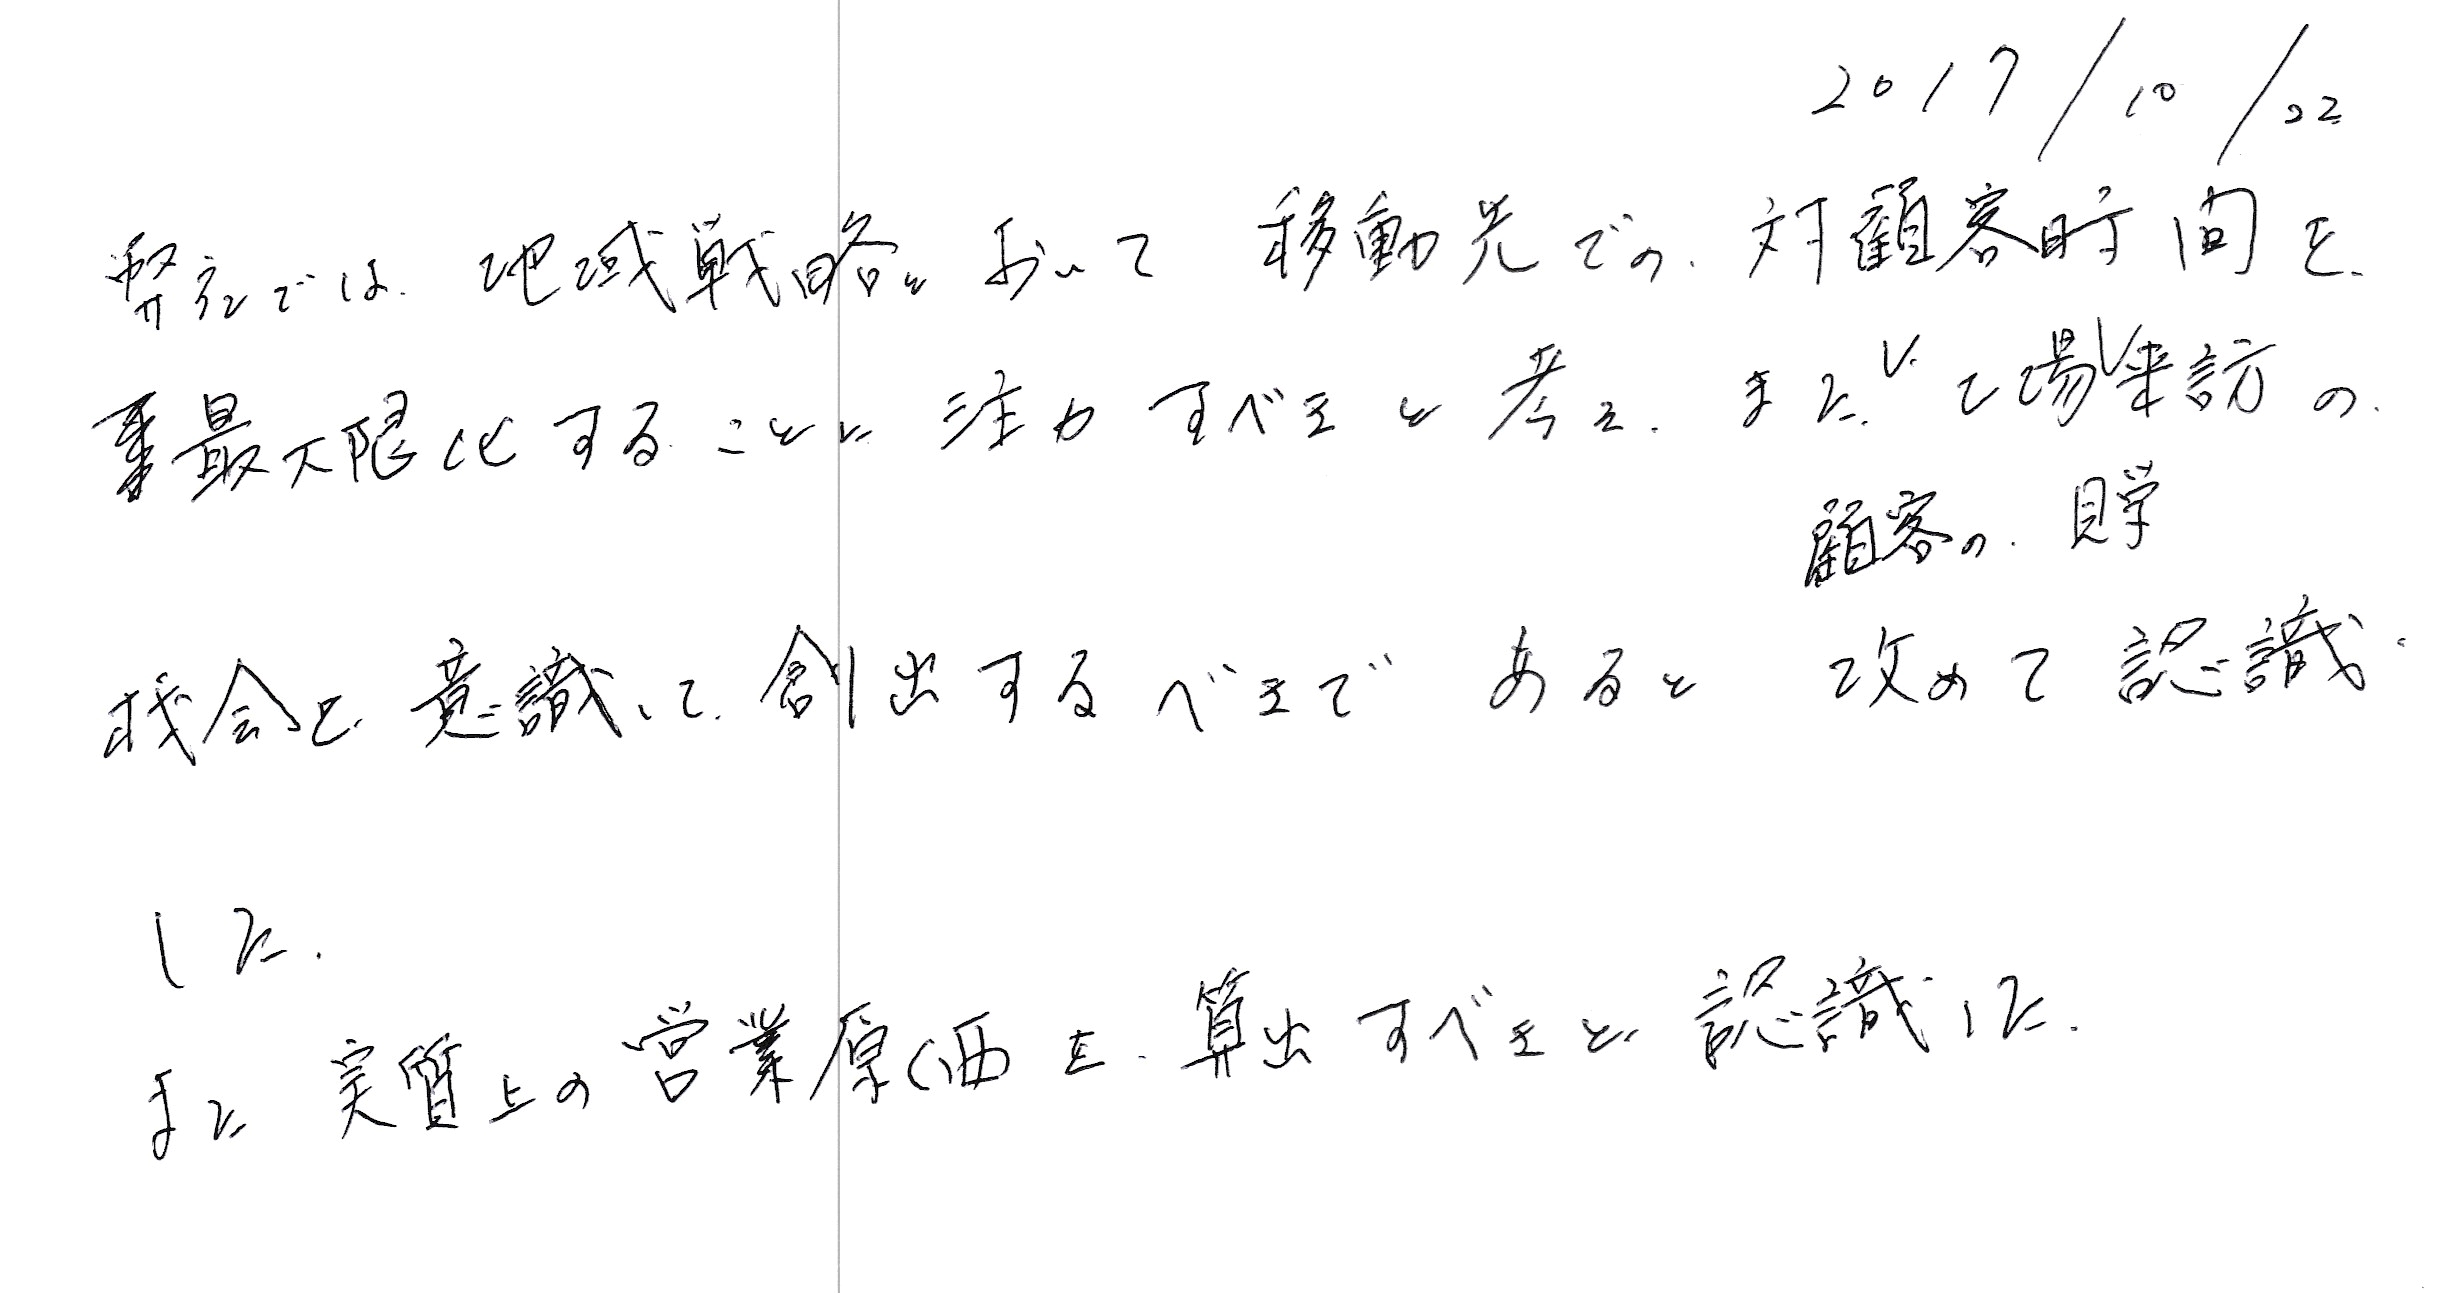 2017/10/22
弊社では 地域戦略において 移動先での 対顧客時間を
最大限化することに 注力すべきと考え、また、工場来訪の
顧客の 見学
機会を 意識して 創出するべきで あると 改めて 認識
した.
また 実質上の営業原価を 算出すべきと 認識した.